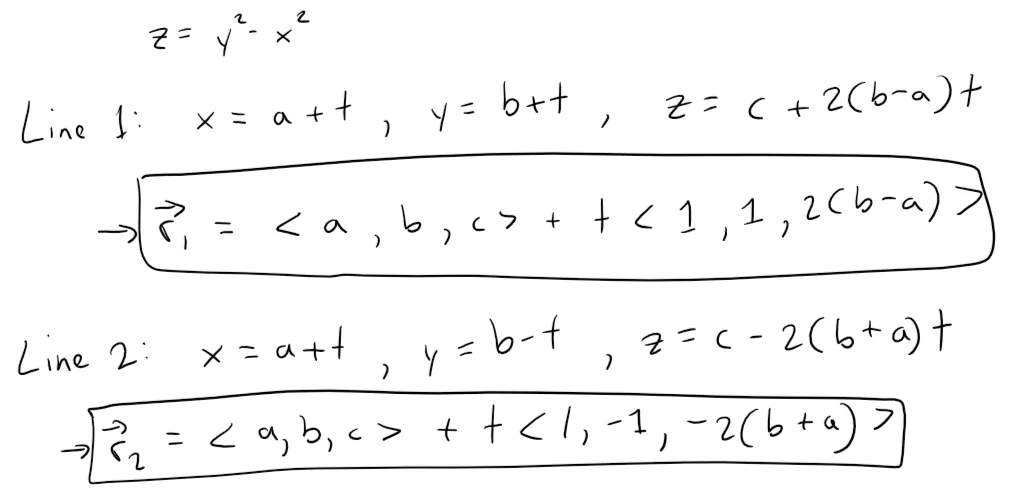 z = y² - x²
Line 1: x = a + t , y = b + t , z = c + 2(b-a)t
→ r⃗₁ = < a , b , c > + t < 1 , 1 , 2(b-a) >
Line 2: x = a + t , y = b - t , z = c - 2(b+a)t
→ r⃗₂ = < a, b, c > + t < 1, -1, -2(b+a) >